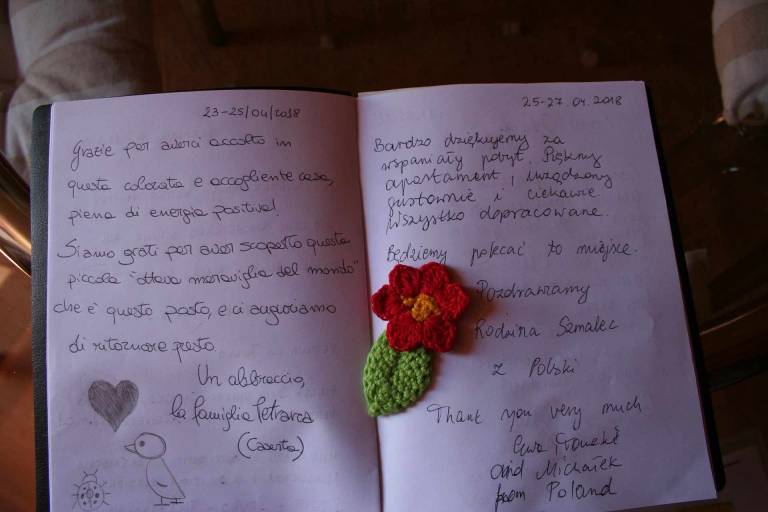 23-25/04/2018
Grazie per averci accolto in
questa colorata e accogliente casa,
piena di energia positiva!
Siamo grati per aver scoperto questa
piccola "ottava meraviglia del mondo"
che è questo posto, e ci auguriamo
di ritornare presto.
Un abbraccio,
la famiglia Petrarca
(Caserta)
25-27.04.2018
Bardzo dziękujemy za
wspaniały pobyt. Piękny
apartament, urządzony
gustownie i ciekawie.
Wszystko dopracowane.
Będziemy polecać to miejsce.
Pozdrawiamy
Rodzina Szmalec
z Polski
Thank you very much
Ewa
Michałek
from Poland